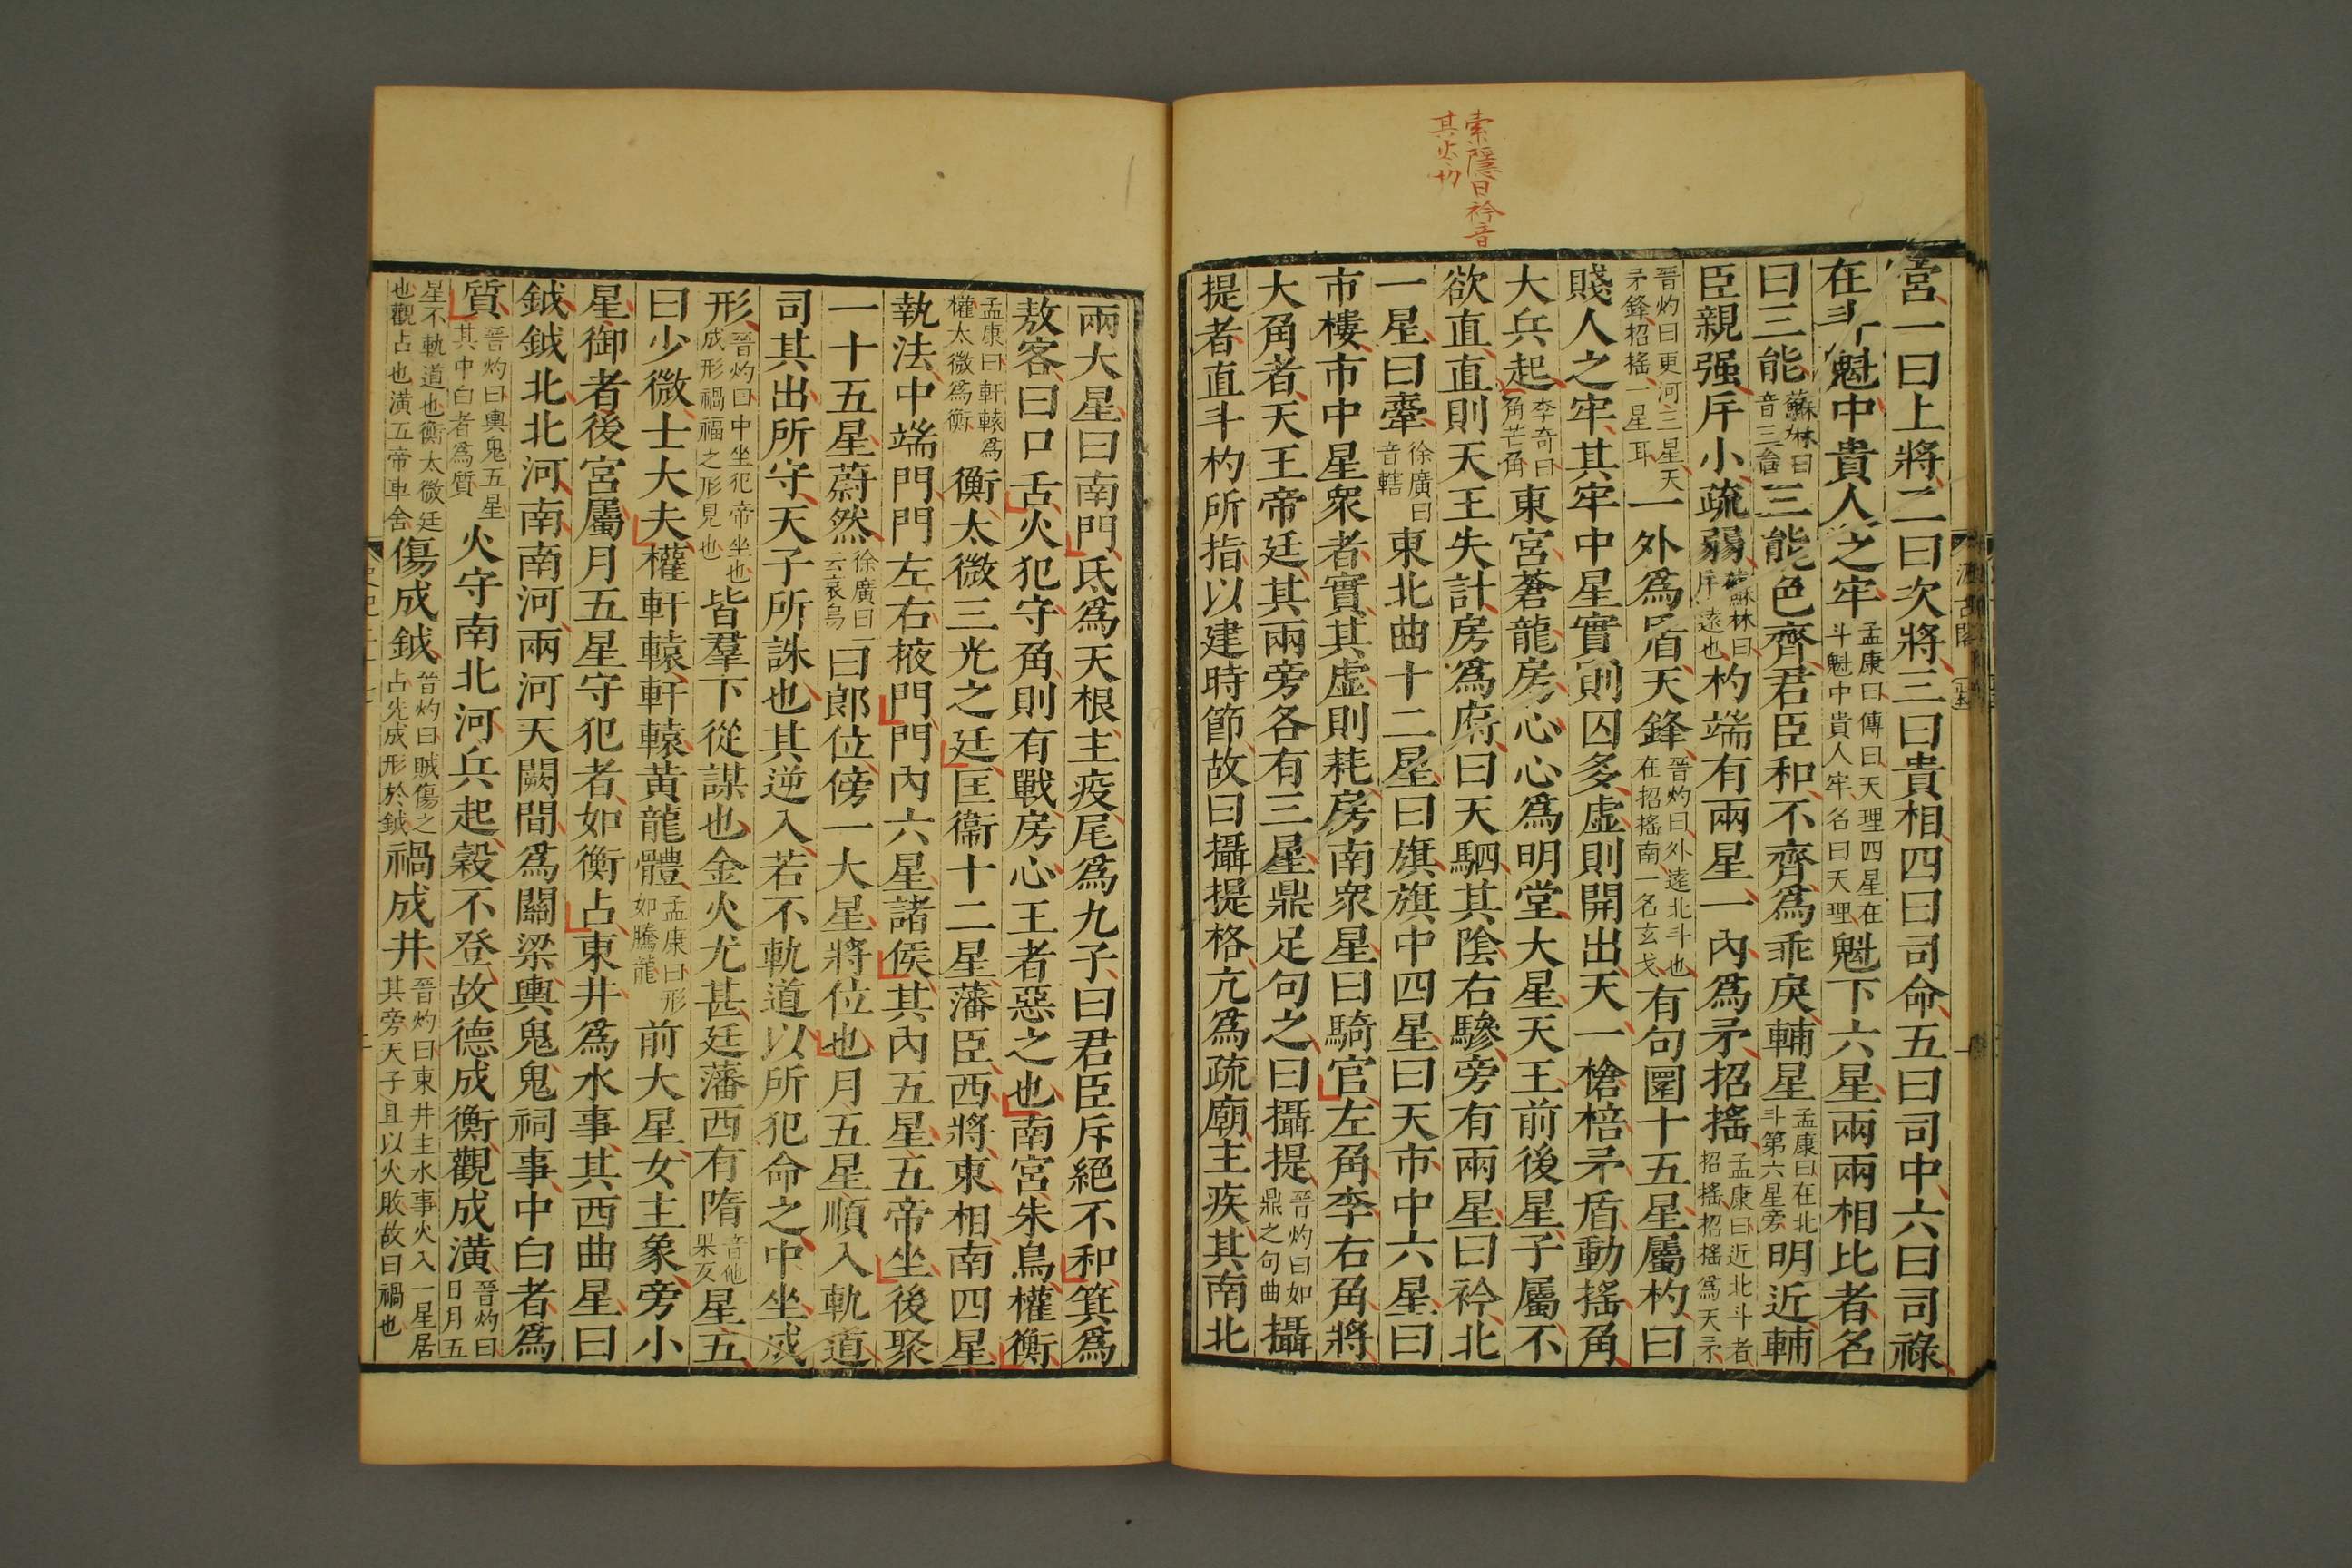 索隱曰衿音
其炎切
宮一曰上將二曰次將三曰貴相四曰司命五曰司中六曰司祿
在斗魁中貴人之牢孟康曰傳曰天理四星在斗魁中貴人牢名曰天理魁下六星兩兩相比者名
曰三能蘇林曰音三台三能色齊君臣和不齊爲乖戾輔星孟康曰在北斗第六星旁明近輔
臣親强斥小疏弱蘇林曰斥遠也杓端有兩星一內爲矛招搖孟康曰近北斗者招搖招搖爲天矛
晉灼曰更河三星天矛鋒招搖一星耳一外爲盾天鋒晉灼曰外遠北斗也在招搖南一名玄戈有句圜十五星屬杓曰
賤人之牢其牢中星實則囚多虛則開出天一槍棓矛盾動搖角
大兵起李奇曰角芒角東宮蒼龍房心心爲明堂大星天王前後星子屬不
欲直直則天王失計房爲府曰天駟其陰右驂旁有兩星曰衿北
一星曰舝徐廣曰音轄東北曲十二星曰旗旗中四星曰天市中六星曰
市樓市中星衆者實其虛則耗房南衆星曰騎官左角李右角將
大角者天王帝廷其兩旁各有三星鼎足句之曰攝提晉灼曰如鼎之句曲攝
提者直斗杓所指以建時節故曰攝提格亢爲疏廟主疾其南北
兩大星曰南門氐爲天根主疫尾爲九子曰君臣斥絕不和箕爲
敖客曰口舌火犯守角則有戰房心王者惡之也南宮朱鳥權衡
孟康曰軒轅爲權太微爲衡衡太微三光之廷匡衞十二星藩臣西將東相南四星
執法中端門門左右掖門門內六星諸侯其內五星五帝坐後聚
一十五星蔚然徐廣曰一云哀烏曰郎位傍一大星將位也月五星順入軌道
司其出所守天子所誅也其逆入若不軌道以所犯命之中坐成
形晉灼曰中坐犯帝坐也成形禍福之形見也皆羣下從謀也金火尤甚廷藩西有隋音他果反星五
曰少微士大夫權軒轅軒轅黃龍體孟康曰形如騰龍前大星女主象旁小
星御者後宮屬月五星守犯者如衡占東井爲水事其西曲星曰
鉞鉞北北河南南河兩河天闕間爲關梁輿鬼鬼祠事中白者爲
質晉灼曰輿鬼五星其中白者爲質火守南北河兵起穀不登故德成衡觀成潢晉灼曰日月五
星不軌道也衡太微廷也觀占也潢五帝車舍傷成鉞晉灼曰賊傷之占先成形於鉞禍成井晉灼曰東井主水事火入一星居其旁天子且以火敗故曰禍也